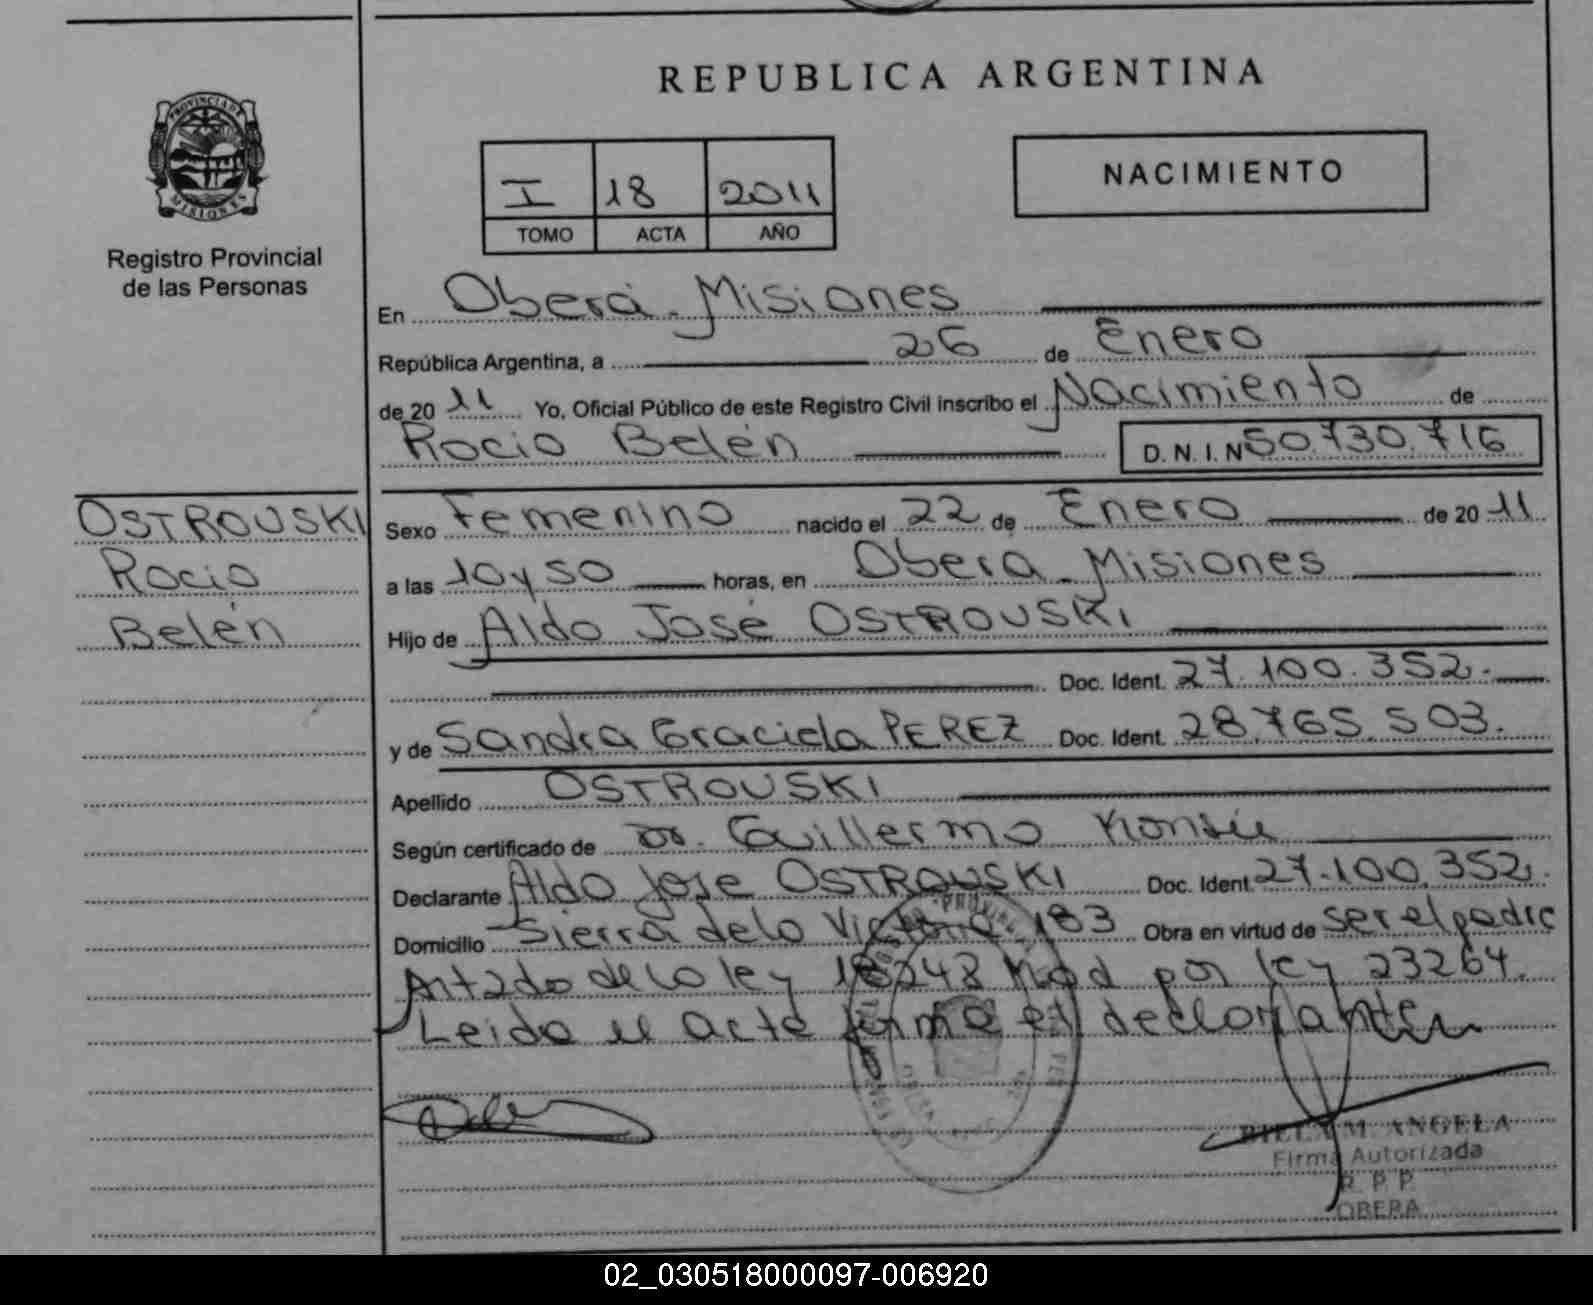 REPUBLICA ARGENTINA
PROVINCIA DE
MISIONES
Registro Provincial
de las Personas
I 18 2011
TOMO ACTA AÑO
NACIMIENTO
En Oberá - Misiones
República Argentina, a 26 de Enero
de 2011 Yo, Oficial Público de este Registro Civil inscribo el Nacimiento de
Rocio Belén D. N. I. N 50.730.716
OSTROUSKI
Rocio
Belén
Sexo Femenino nacido el 22 de Enero de 2011
a las 10 y 50 horas, en Obera - Misiones
Hijo de Aldo José OSTROUSKI
Doc. Ident. 27.100.352.-
y de Sandra Graciela PEREZ Doc. Ident. 28.765.503.
Apellido OSTROUSKI
Según certificado de Dr. Guillermo
Declarante Aldo Jose OSTROUSKI Doc. Ident. 27.100.352.
Domicilio Sierra de la Victoria 183 Obra en virtud de ser el padre
de la ley 18248 Mod por ley 23264.
Leido el acta firma el declarante
M. ANGELA
Firma Autorizada
R. P. P.
OBERA
02_030518000097-006920